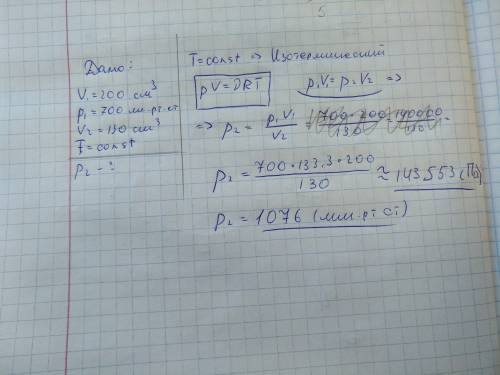 5
Дано:
V₁ = 200 см³
p₁ = 700 мм.рт.ст
V₂ = 130 см³
T = const
p₂ - ?
T = const => Изотермический
pV = νRT p₁V₁ = p₂V₂ =>
=> p₂ = p₁V₁ / V₂ =
p₂ = 700·133,3·200 / 130 ≈ 143553 (Па)
p₂ = 1076 (мм.рт ст)